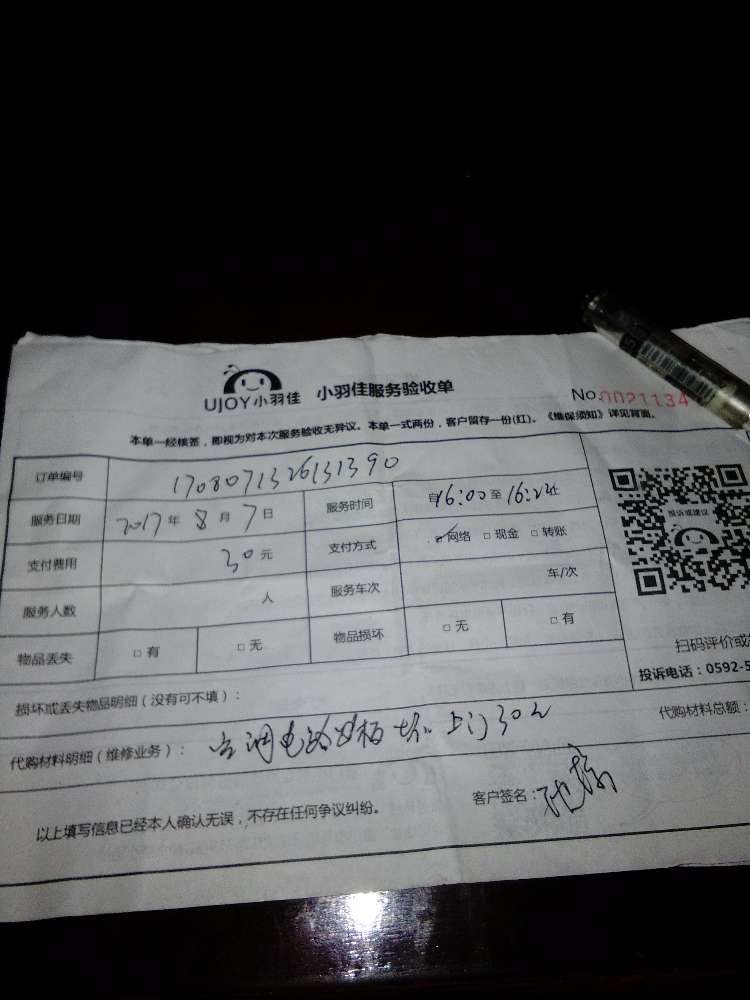 UJOY小羽佳 小羽佳服务验收单
No.0021134
本单一经核签，即视为对本次服务验收无异议。本单一式两份，客户留存一份(红)。《维保须知》详见背面。
订单编号 1708071326131390
服务日期 2017年8月7日 服务时间 自16:00至16:22止
支付费用 30元 支付方式 ☑网络 □现金 □转账
服务人数 人 服务车次 车/次
物品丢失 □有 □无 物品损坏 □无 □有
投诉或建议
扫码评价或
投诉电话：0592-5
损坏或丢失物品明细（没有可不填）：
代购材料明细（维修业务）：空调电路板坏 上门30元
代购材料总额：
以上填写信息已经本人确认无误，不存在任何争议纠纷。
客户签名：